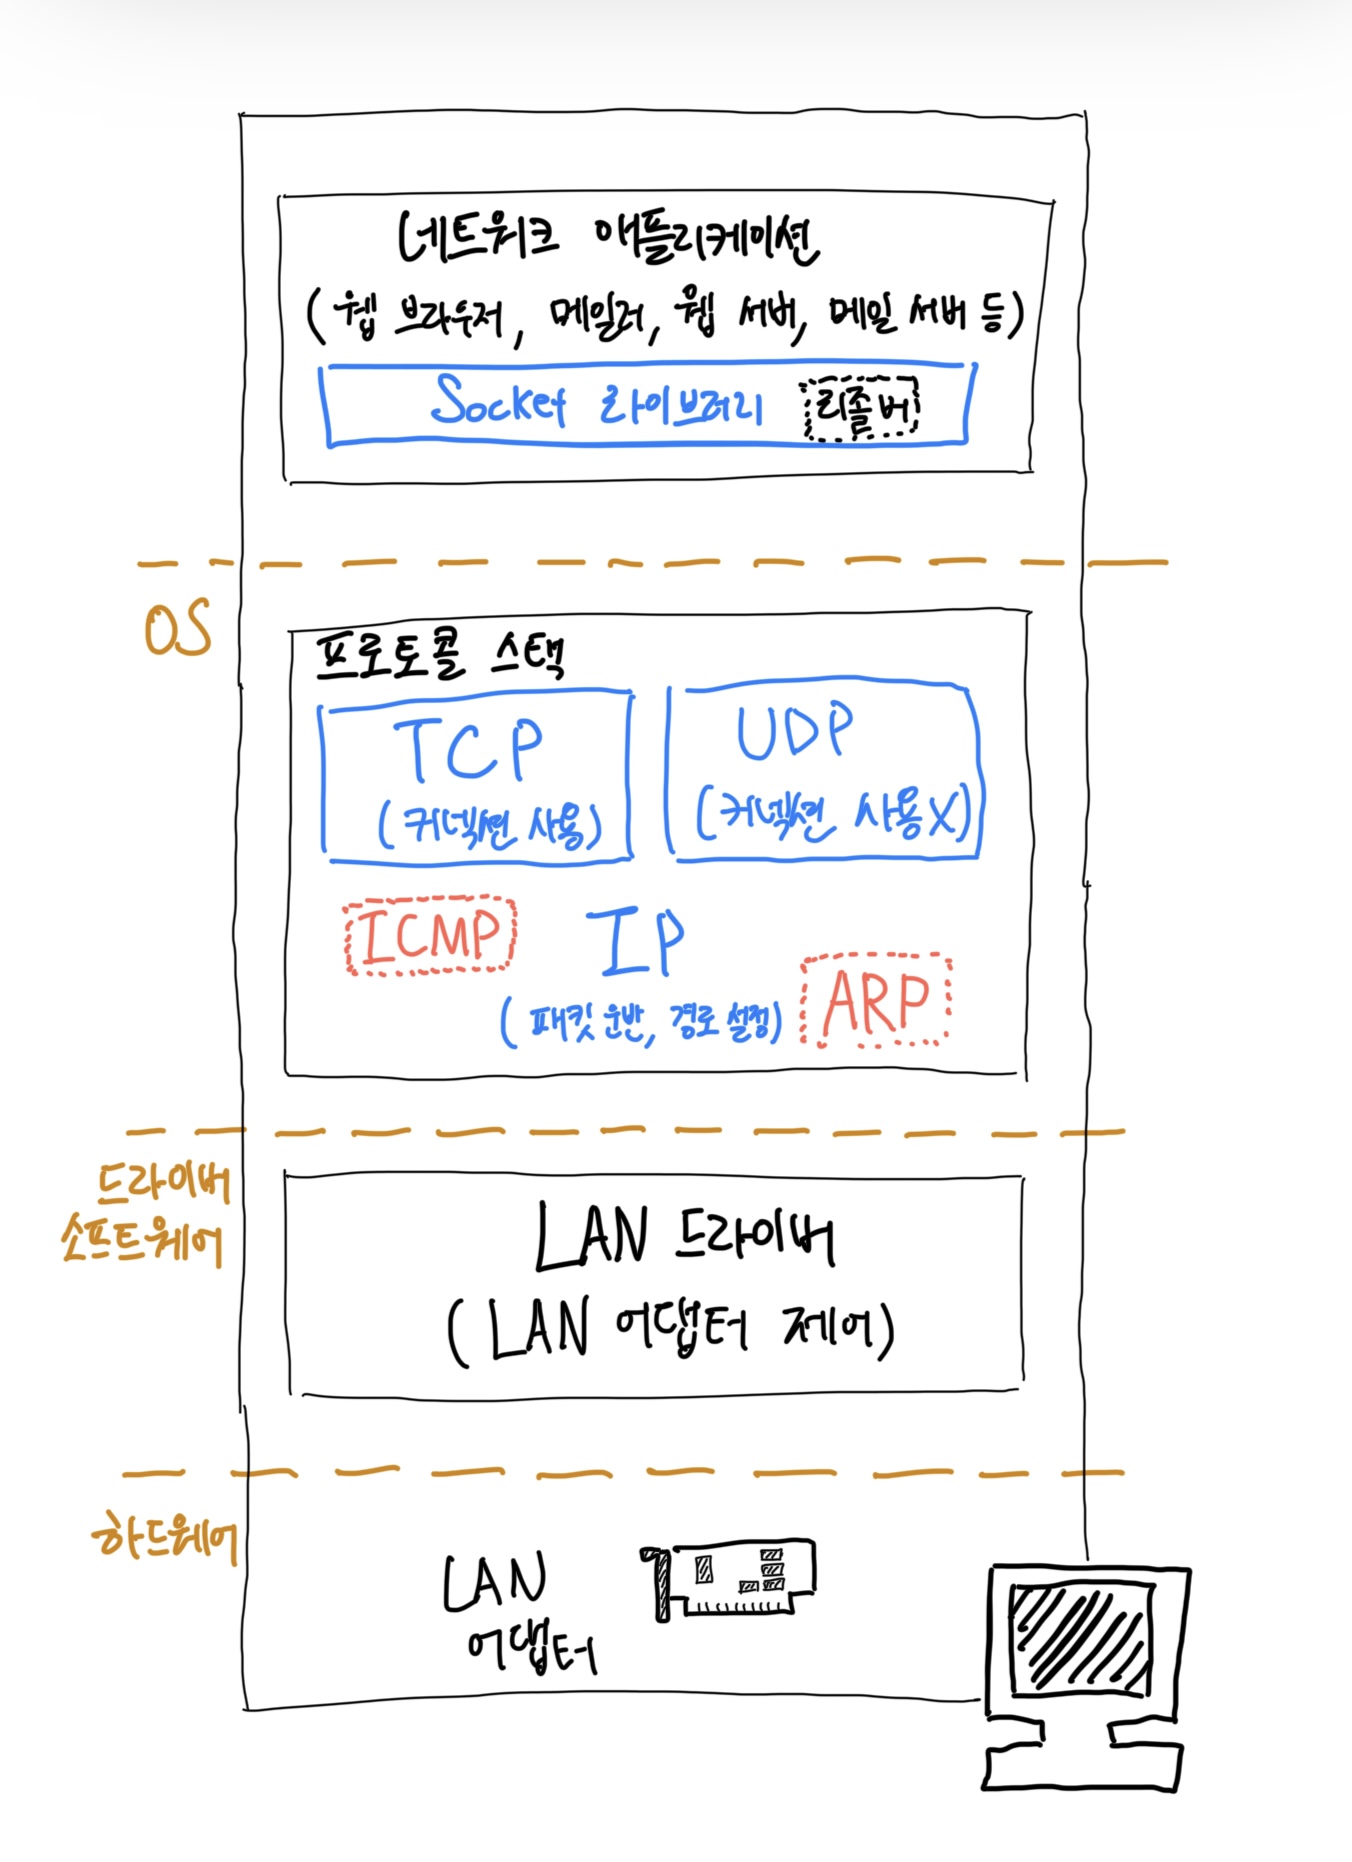 네트워크 애플리케이션
(웹 브라우저, 메일러, 웹 서버, 메일 서버 등)
Socket 라이브러리 리졸버
OS
프로토콜 스택
TCP
(커넥션 사용)
UDP
(커넥션 사용X)
ICMP
IP
(패킷 운반, 경로 설정)
ARP
드라이버
소프트웨어
LAN 드라이버
(LAN 어댑터 제어)
하드웨어
LAN
어댑터